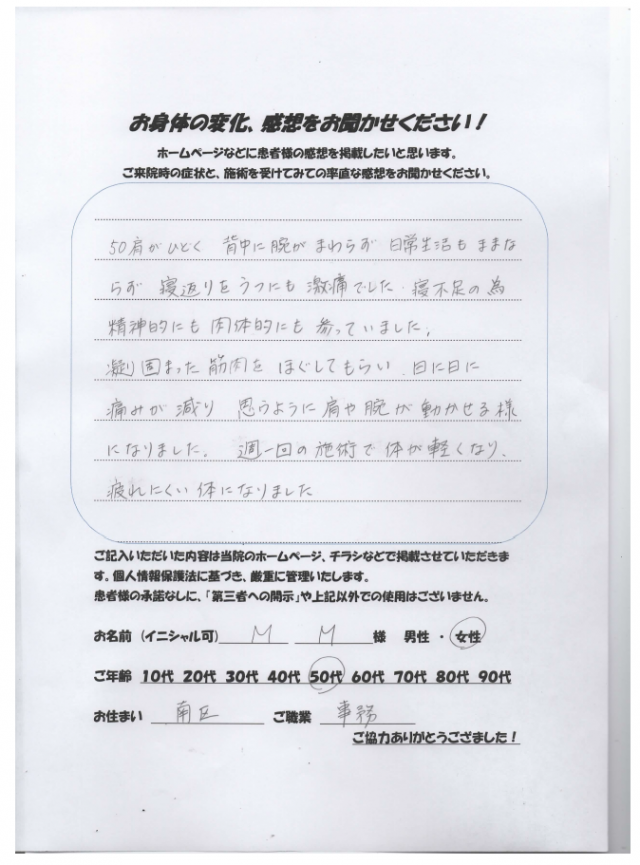 お身体の変化、感想をお聞かせください！
ホームページなどに患者様の感想を掲載したいと思います。
ご来院時の症状と、施術を受けてみての率直な感想をお聞かせください。
50肩がひどく 背中に腕がまわらず 日常生活もままな
らず 寝返りをうつにも激痛でした。寝不足の為
精神的にも肉体的にも 参っていました。
凝り固まった筋肉を ほぐしてもらい、日に日に
痛みが減り 思うように肩や腕が動かせる様
になりました。 週一回の施術で体が軽くなり、
疲れにくい体になりました
ご記入いただいた内容は当院のホームページ、チラシなどで掲載させていただきま
す。個人情報保護法に基づき、厳重に管理いたします。
患者様の承諾なしに、「第三者への開示」や上記以外での使用はございません。
お名前（イニシャル可） M M 様 男性 ・ 女性
ご年齢 10代 20代 30代 40代 50代 60代 70代 80代 90代
お住まい 南区 ご職業 事務
ご協力ありがとうござました！